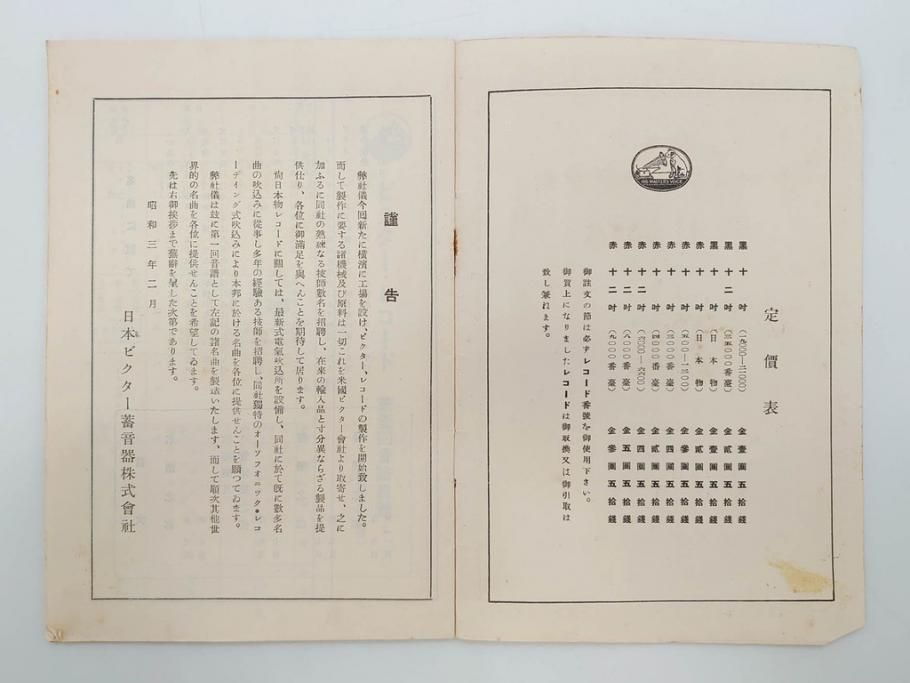 HIS MASTER'S VOICE
定價表
黑 十 吋 金壹圓五拾錢
黑 十二吋 金貳圓五拾錢
黑 十 吋 （日本物） 金壹圓五拾錢
赤 十二吋 （日本物） 金貳圓五拾錢
赤 十 吋 金參圓五拾錢
赤 十 吋 金四圓五拾錢
赤 十 吋 金貳圓五拾錢
赤 十二吋 金四圓五拾錢
赤 十二吋 （八〇〇〇番臺） 金五圓五拾錢
赤 十二吋 （九〇〇〇番臺） 金參圓五拾錢
御註文の節は必ずレコード番號を御使用下さい。
御買上になりましたレコードは御取換又は御引取は
致し兼れます。
謹告
弊社儀今囘新たに橫濱に工場を設け、ビクター、レコードの製作を開始致しました。
而して製作に要する諸機械及び原料は一切これを米國ビクター會社より取寄せ、之に
加ふるに同社の熟練なる技師數名を招聘し、在來の輸入品と寸分異ならざる製品を提
供仕り、各位に御滿足を與へんことを期待して居ります。
尙日本物レコードに關しては、最新式電氣吹込所を設備し、同社に於て既に數多名
曲の吹込みに從事し多年の經驗ある技師を招聘し、同社獨特のオーソフオニツク・レコ
ーデイング式吹込みにより本邦に於ける名曲を各位に提供せんことを願つてゐます。
弊社儀は玆に第一回音譜として左記の諸名曲を製造いたします、而して順次其他世
界的の名曲を各位に提供せんことを希望してゐます。
先は右御挨拶まで蕪辭を呈した次第であります。
昭和三年二月
日本ビクター蓄音器株式會社